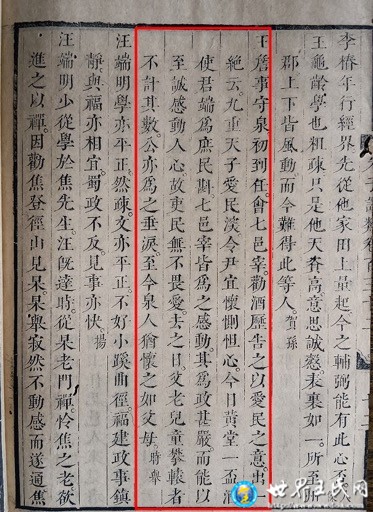 李椿年行經界先從他家田上量起今之輔弼能有此心否
王龜齡學也粗疎只是他天資高意思誠慤表裏如一所至州
郡上下皆風動而今難得此等人 賀孫
王詹事守泉初到任會七邑宰勸酒歷告之以愛民之意出一
絕云九重天子愛民深令尹宜懷惻怛心今日黃堂一盃酒
使君端爲庶民斟七邑宰皆爲之感動其爲政甚嚴而能以
至誠感動人心故吏民無不畏愛去之日父老兒童攀轅者
不計其數公亦爲之垂淚至今泉人猶懷之如父母 時舉
汪端明學亦平正然疎文亦平正不好小蹊曲徑福建政事鎮
靜與福亦相宜蜀政不及見事亦快 揚
汪端明少從學於焦先生汪旣達時從杲老問禪怜焦之老欲
進之以禪因勸焦登徑山見杲杲舉寂然不動感而遂通焦
世界王氏网